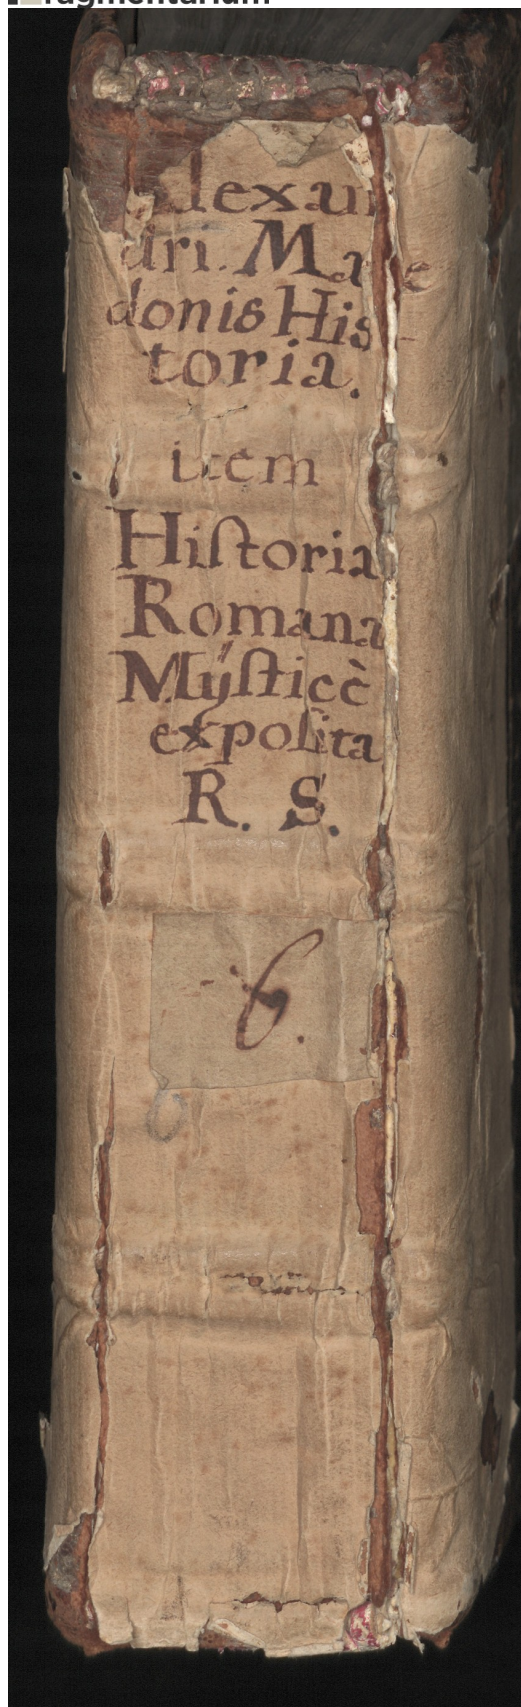 ragmentarium
Alexan
dri. Mace
donis His-
toria.
item
Hiſtoria
Romana
Mÿſticè
expoſita
R. S.
6.